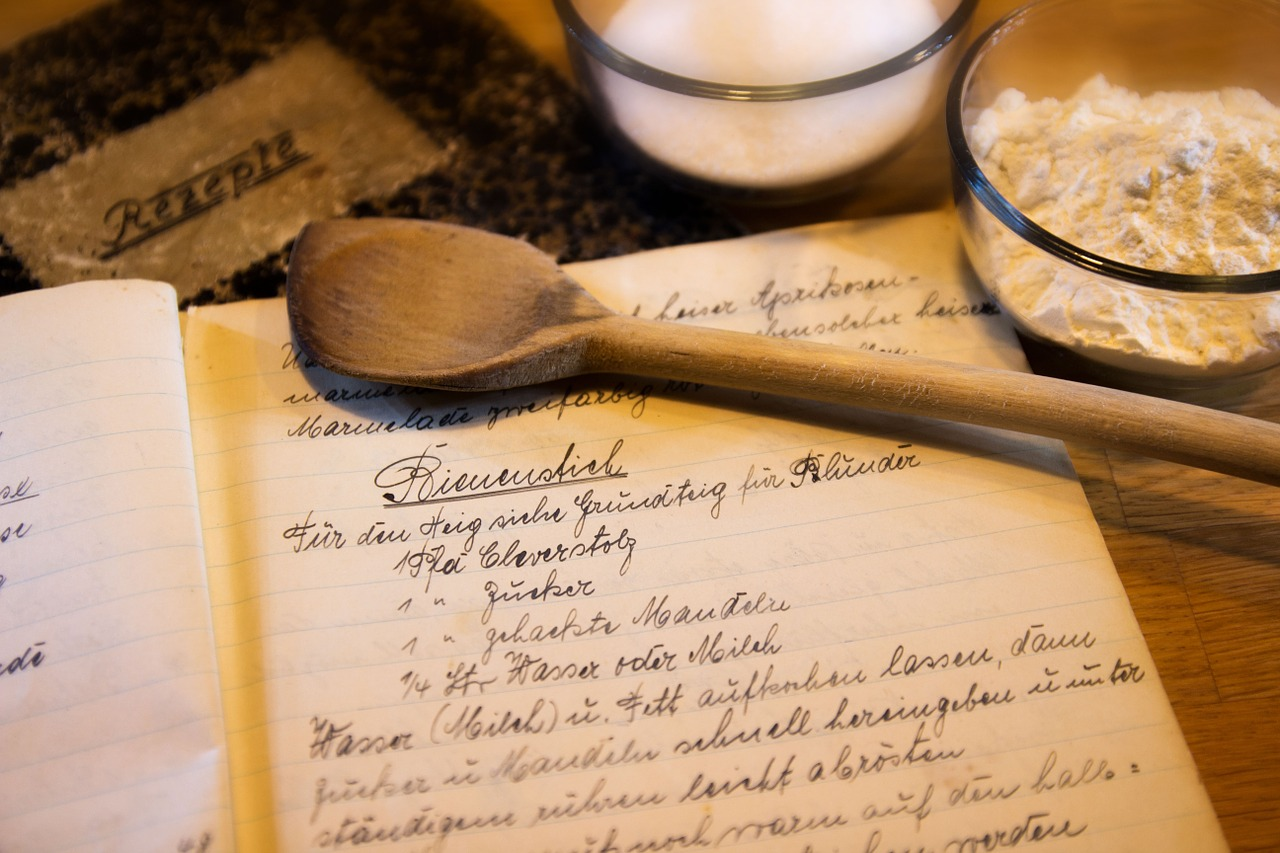 Rezepte
heiser Aprikosen-
ebensolcher heiser
Marmelade zweifarbig
Bienenstich
Für den Teig siehe Grundteig für Plunder
1 Pfd Cleverstolz
1 " Zucker
1 " gehackte Mandeln
1/4 Ltr Wasser oder Milch
Wasser (Milch) u. Fett aufkochen lassen, dann
Zucker u Mandeln schnell hereingeben u unter
ständigem rühren leicht abrösten
noch warm auf den halb=
werden